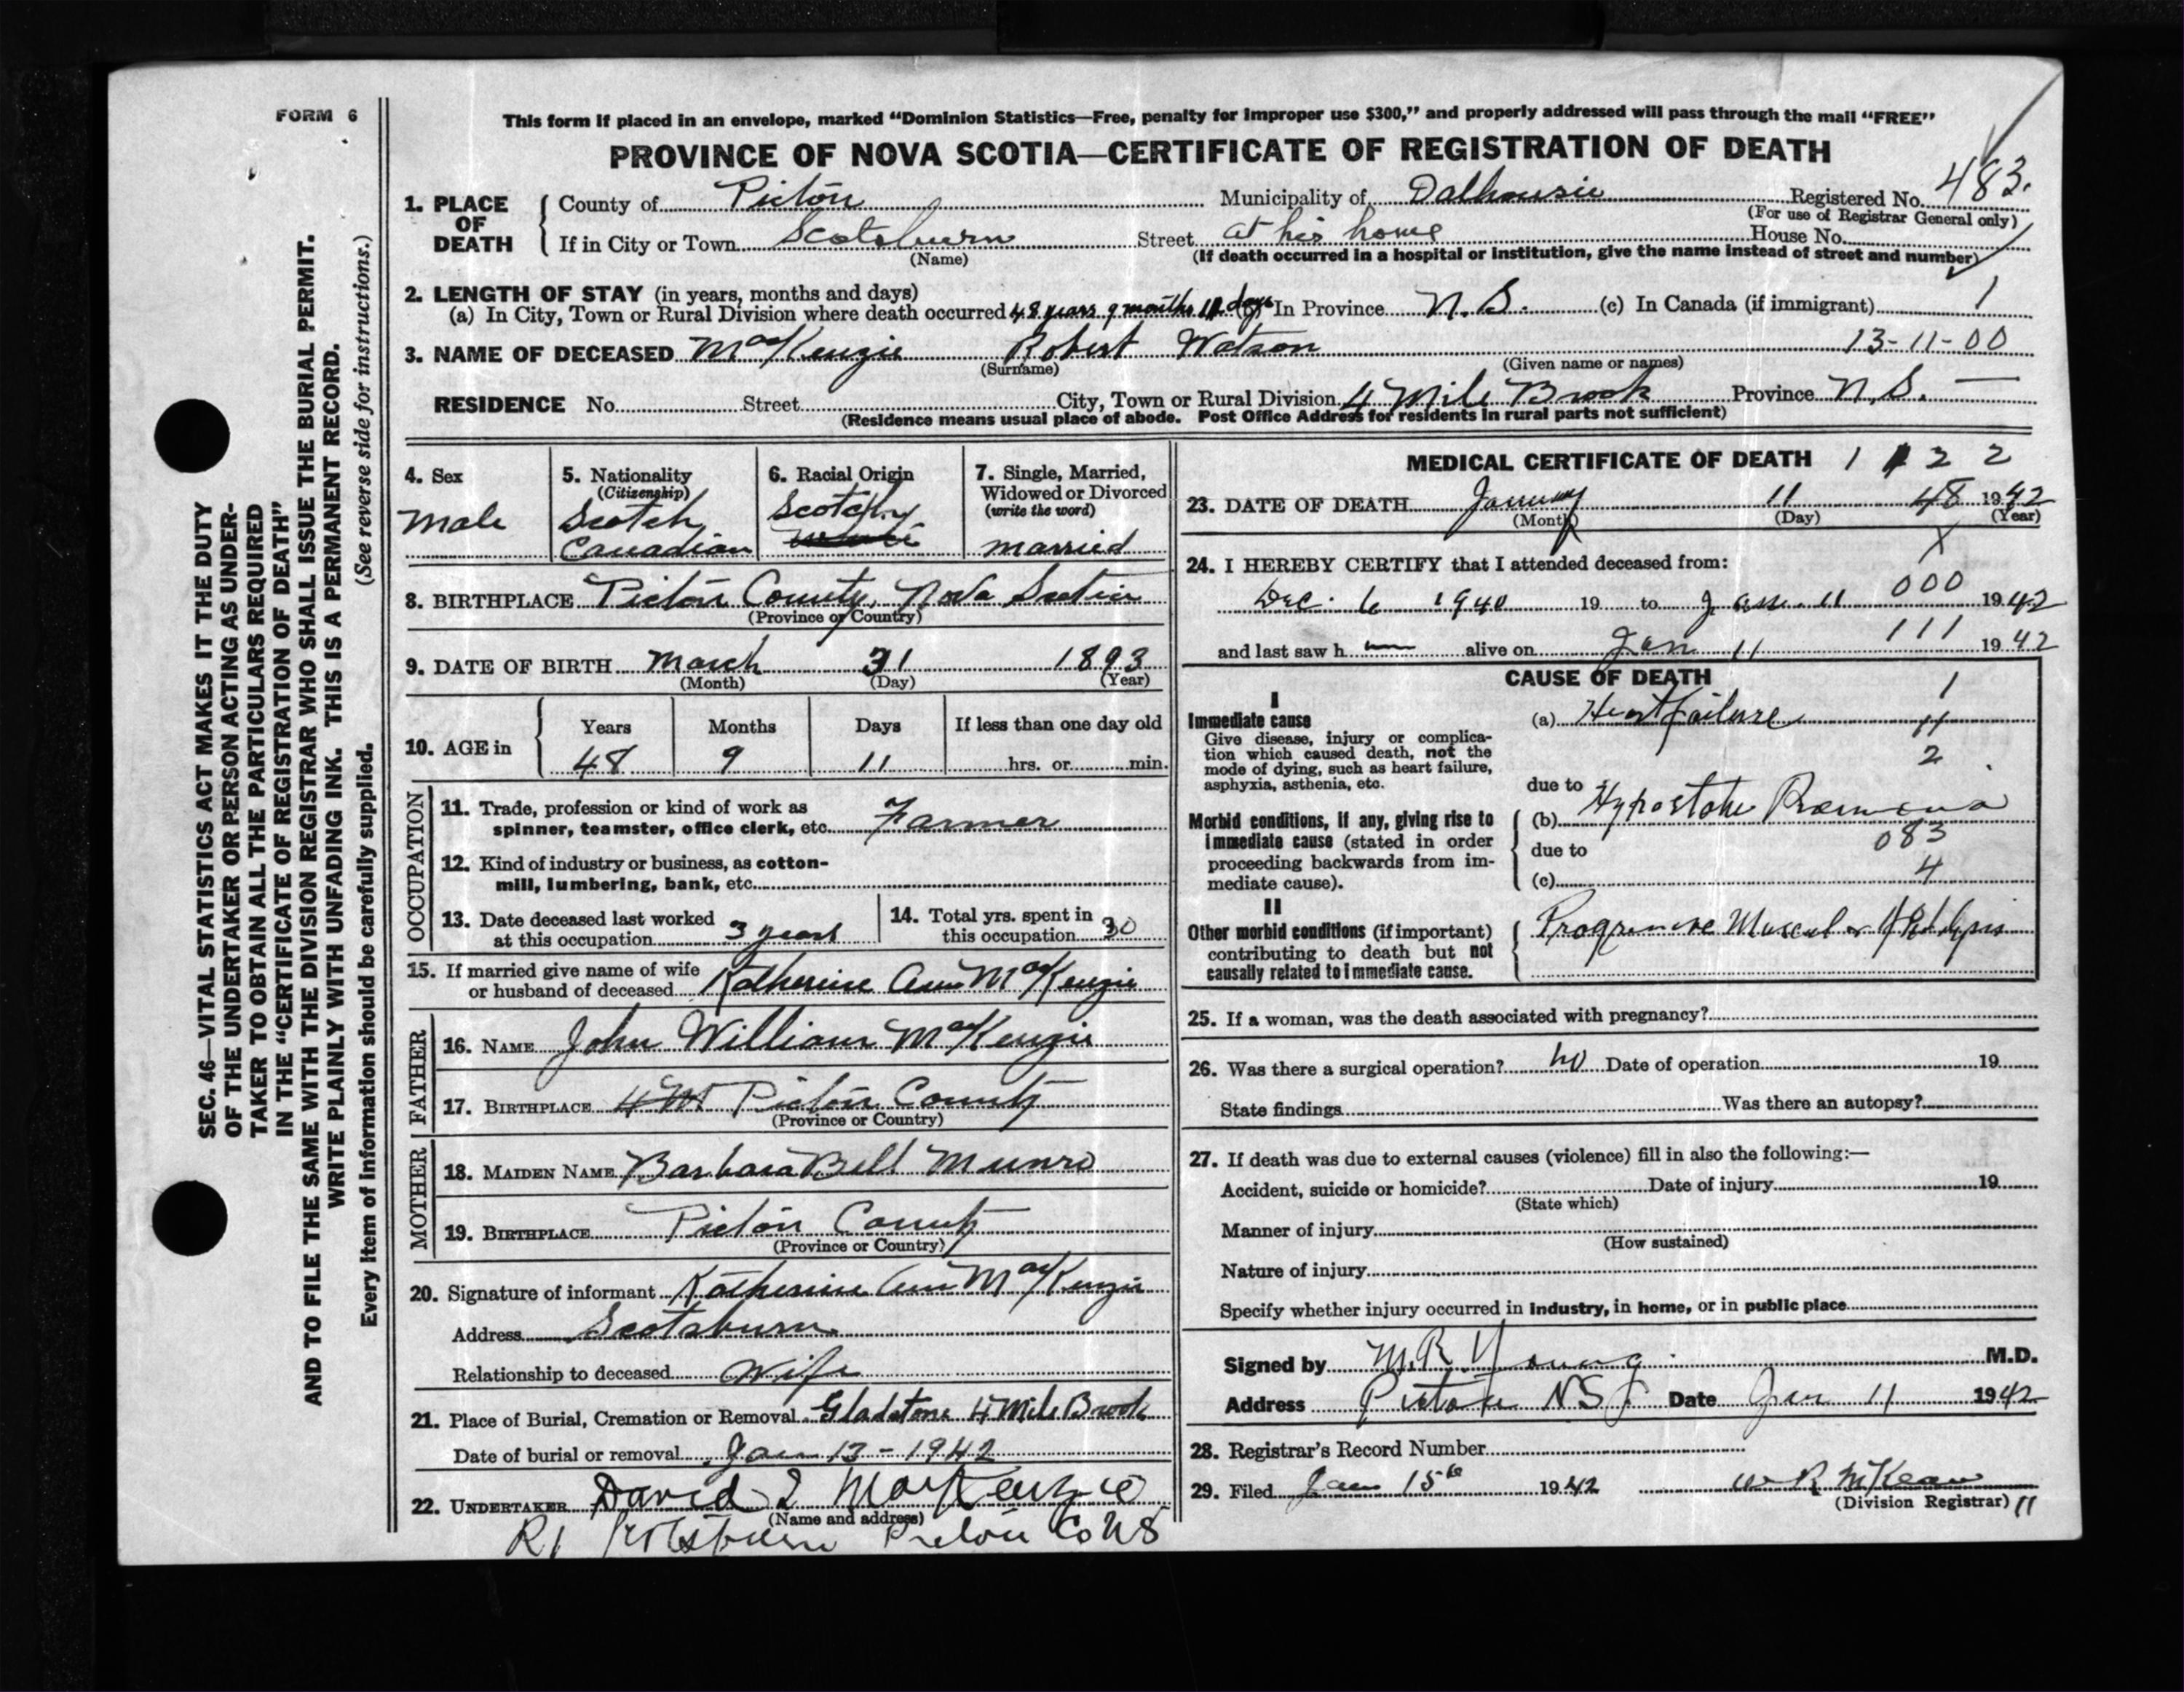 FORM 6
SEC. 46—VITAL STATISTICS ACT MAKES IT THE DUTY
OF THE UNDERTAKER OR PERSON ACTING AS UNDER-
TAKER TO OBTAIN ALL THE PARTICULARS REQUIRED
IN THE "CERTIFICATE OF REGISTRATION OF DEATH"
AND TO FILE THE SAME WITH THE DIVISION REGISTRAR WHO SHALL ISSUE THE BURIAL PERMIT.
WRITE PLAINLY WITH UNFADING INK. THIS IS A PERMANENT RECORD.
Every item of information should be carefully supplied. (See reverse side for instructions.)
This form if placed in an envelope, marked "Dominion Statistics—Free, penalty for improper use $300," and properly addressed will pass through the mail "FREE"
PROVINCE OF NOVA SCOTIA—CERTIFICATE OF REGISTRATION OF DEATH
1. PLACE OF DEATH
County of Pictou Municipality of Dalhousie Registered No. 483.
(For use of Registrar General only)
If in City or Town Scotsburn Street at his home House No.
(Name) (If death occurred in a hospital or institution, give the name instead of street and number)
2. LENGTH OF STAY (in years, months and days)
(a) In City, Town or Rural Division where death occurred 48 years 9 months 11 days In Province N.S. (c) In Canada (if immigrant) 1
3. NAME OF DECEASED MacKenzie Robert Watson 13-11-00
(Surname) (Given name or names)
RESIDENCE No. Street City, Town or Rural Division 4 Mile Brook Province N.S. —
(Residence means usual place of abode. Post Office Address for residents in rural parts not sufficient)
4. Sex
Male
5. Nationality
(Citizenship)
Scotch
Canadian
6. Racial Origin
Scotch
7. Single, Married,
Widowed or Divorced
(write the word)
married
8. BIRTHPLACE Pictou County, Nova Scotia
(Province or Country)
9. DATE OF BIRTH March 31 1893
(Month) (Day) (Year)
10. AGE in
Years Months Days If less than one day old
48 9 11 hrs. or min.
OCCUPATION
11. Trade, profession or kind of work as
spinner, teamster, office clerk, etc. Farmer
12. Kind of industry or business, as cotton-
mill, lumbering, bank, etc.
13. Date deceased last worked
at this occupation 3 years
14. Total yrs. spent in
this occupation 30
15. If married give name of wife
or husband of deceased Katherine Ann MacKenzie
FATHER
16. NAME John William MacKenzie
17. BIRTHPLACE 4 M Pictou County
(Province or Country)
MOTHER
18. MAIDEN NAME Barbara Bell Munro
19. BIRTHPLACE Pictou County
(Province or Country)
20. Signature of informant Katherine Ann MacKenzie
Address Scotsburn
Relationship to deceased Wife
21. Place of Burial, Cremation or Removal Gladstone 4 Mile Brook
Date of burial or removal Jan 13-1942
22. UNDERTAKER David MacKenzie
(Name and address)
R1 Scotsburn Pictou Co NS
MEDICAL CERTIFICATE OF DEATH 1 1 2 2
23. DATE OF DEATH January 11 48 1942
(Month) (Day) (Year)
X
24. I HEREBY CERTIFY that I attended deceased from:
Dec. 6 1940 19 to Jan. 11 000 1942
and last saw h alive on Jan 11 111 1942
CAUSE OF DEATH
I
Immediate cause
Give disease, injury or complica-
tion which caused death, not the
mode of dying, such as heart failure,
asphyxia, asthenia, etc.
(a) Heart failure
1
11
2
due to
Morbid conditions, if any, giving rise to
immediate cause (stated in order
proceeding backwards from im-
mediate cause).
(b)
083
due to
4
(c)
II
Other morbid conditions (if important)
contributing to death but not
causally related to immediate cause.
Progressive Muscular
25. If a woman, was the death associated with pregnancy?
26. Was there a surgical operation? no Date of operation 19
State findings Was there an autopsy?
27. If death was due to external causes (violence) fill in also the following:—
Accident, suicide or homicide? Date of injury 19
(State which)
Manner of injury
(How sustained)
Nature of injury
Specify whether injury occurred in industry, in home, or in public place
Signed by M.R. Young M.D.
Address Pictou NS Date Jan 11 1942
28. Registrar's Record Number
29. Filed Jan 15th 1942 W R McKean
(Division Registrar) 11